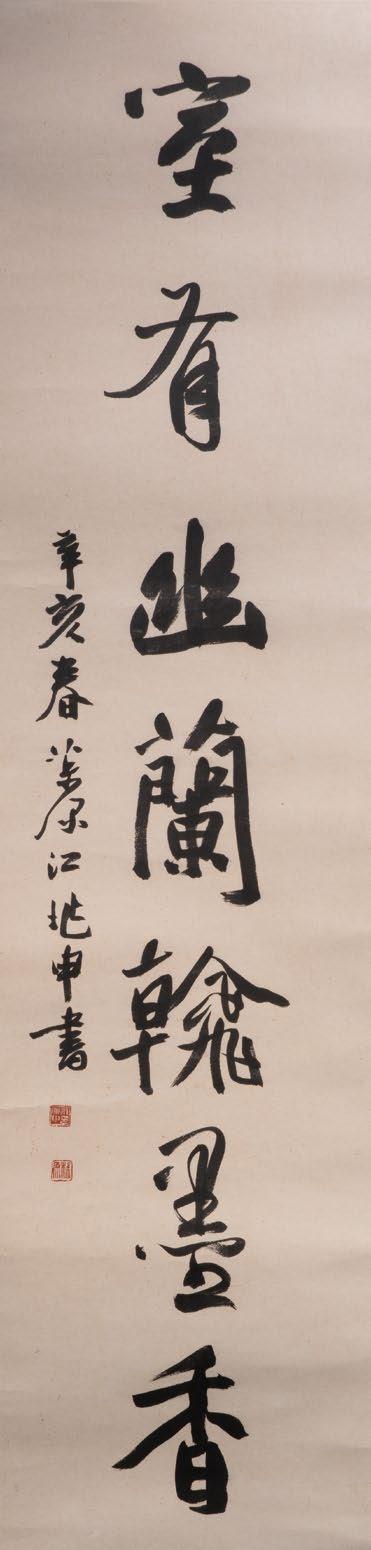 室有幽蘭翰墨香
辛亥春茮原江兆申書